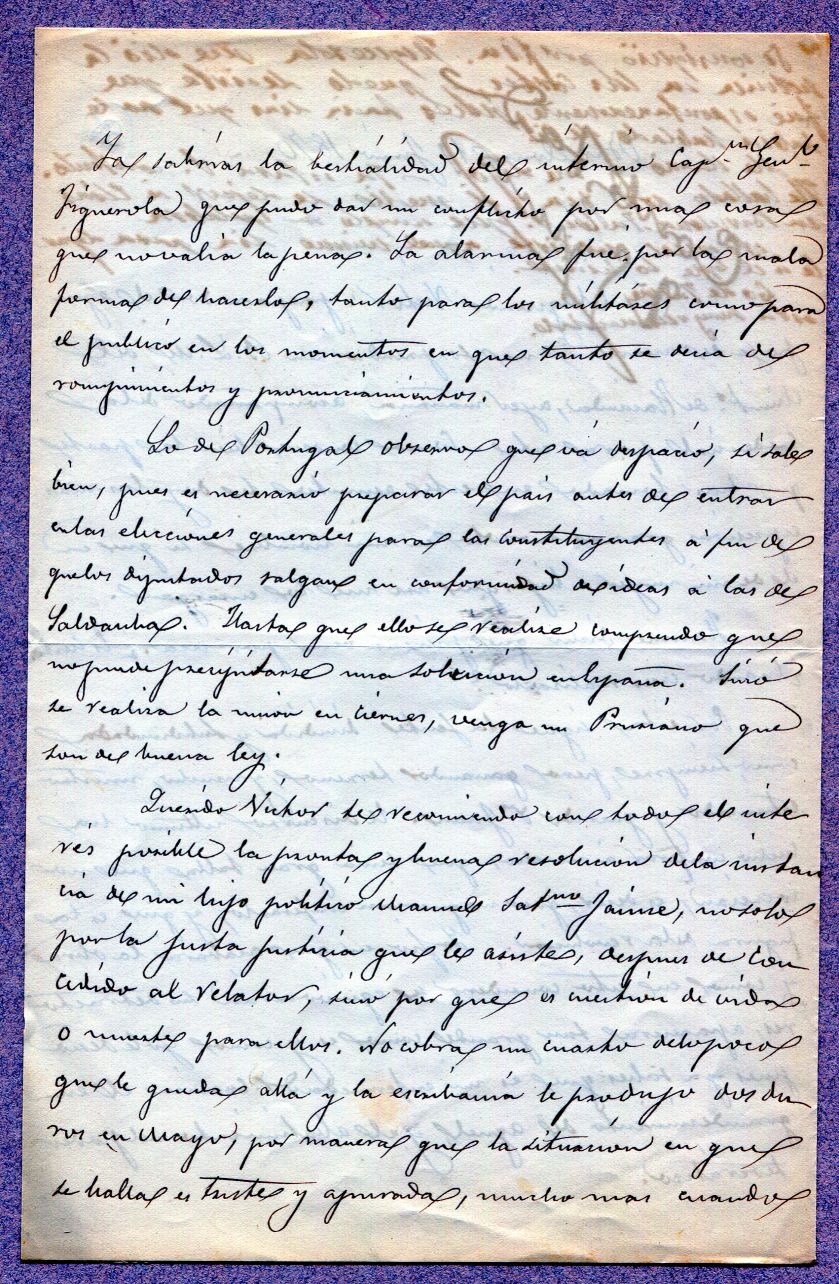 Ya sabrias la bestialidad del interino Cap.n Gen.l
Figuerola que pudo dar un conflicto por una cosa
que no valia la pena. La alarma fué por la mala
forma de hacerlo, tanto para los militares como para
el publico en los momentos en que tanto se decia de
rompimientos y pronunciamientos.
Lo de Portugal observo que vá despacio, si sale
bien, pues es necesario preparar el pais antes de entrar
en las elecciones generales para las constituyentes á fin de
que los diputados salgan en conformidad de ideas á las de
Saldanha. Hasta que ello se realize comprendo que
no puede precipitarse una solucion en España. Sinó
se realiza la union en ciernes, venga un Prusiano que
son de buena ley.
Querido Victor te recomiendo con todo el inte
rés posible la pronta y buena resolucion de la instan
cia de mi hijo politico Manuel Sat.no Jaime, no solo
por la justa justicia que le asiste, despues de con
cedido al relator, sinó por que es cuestion de vida
o muerte para ellos. No cobra un cuarto de lo poco
que le queda allá y la escribania le produjo dos du
ros en Mayo, por manera que la situacion en que
se halla es triste y apurada, mucho mas cuando